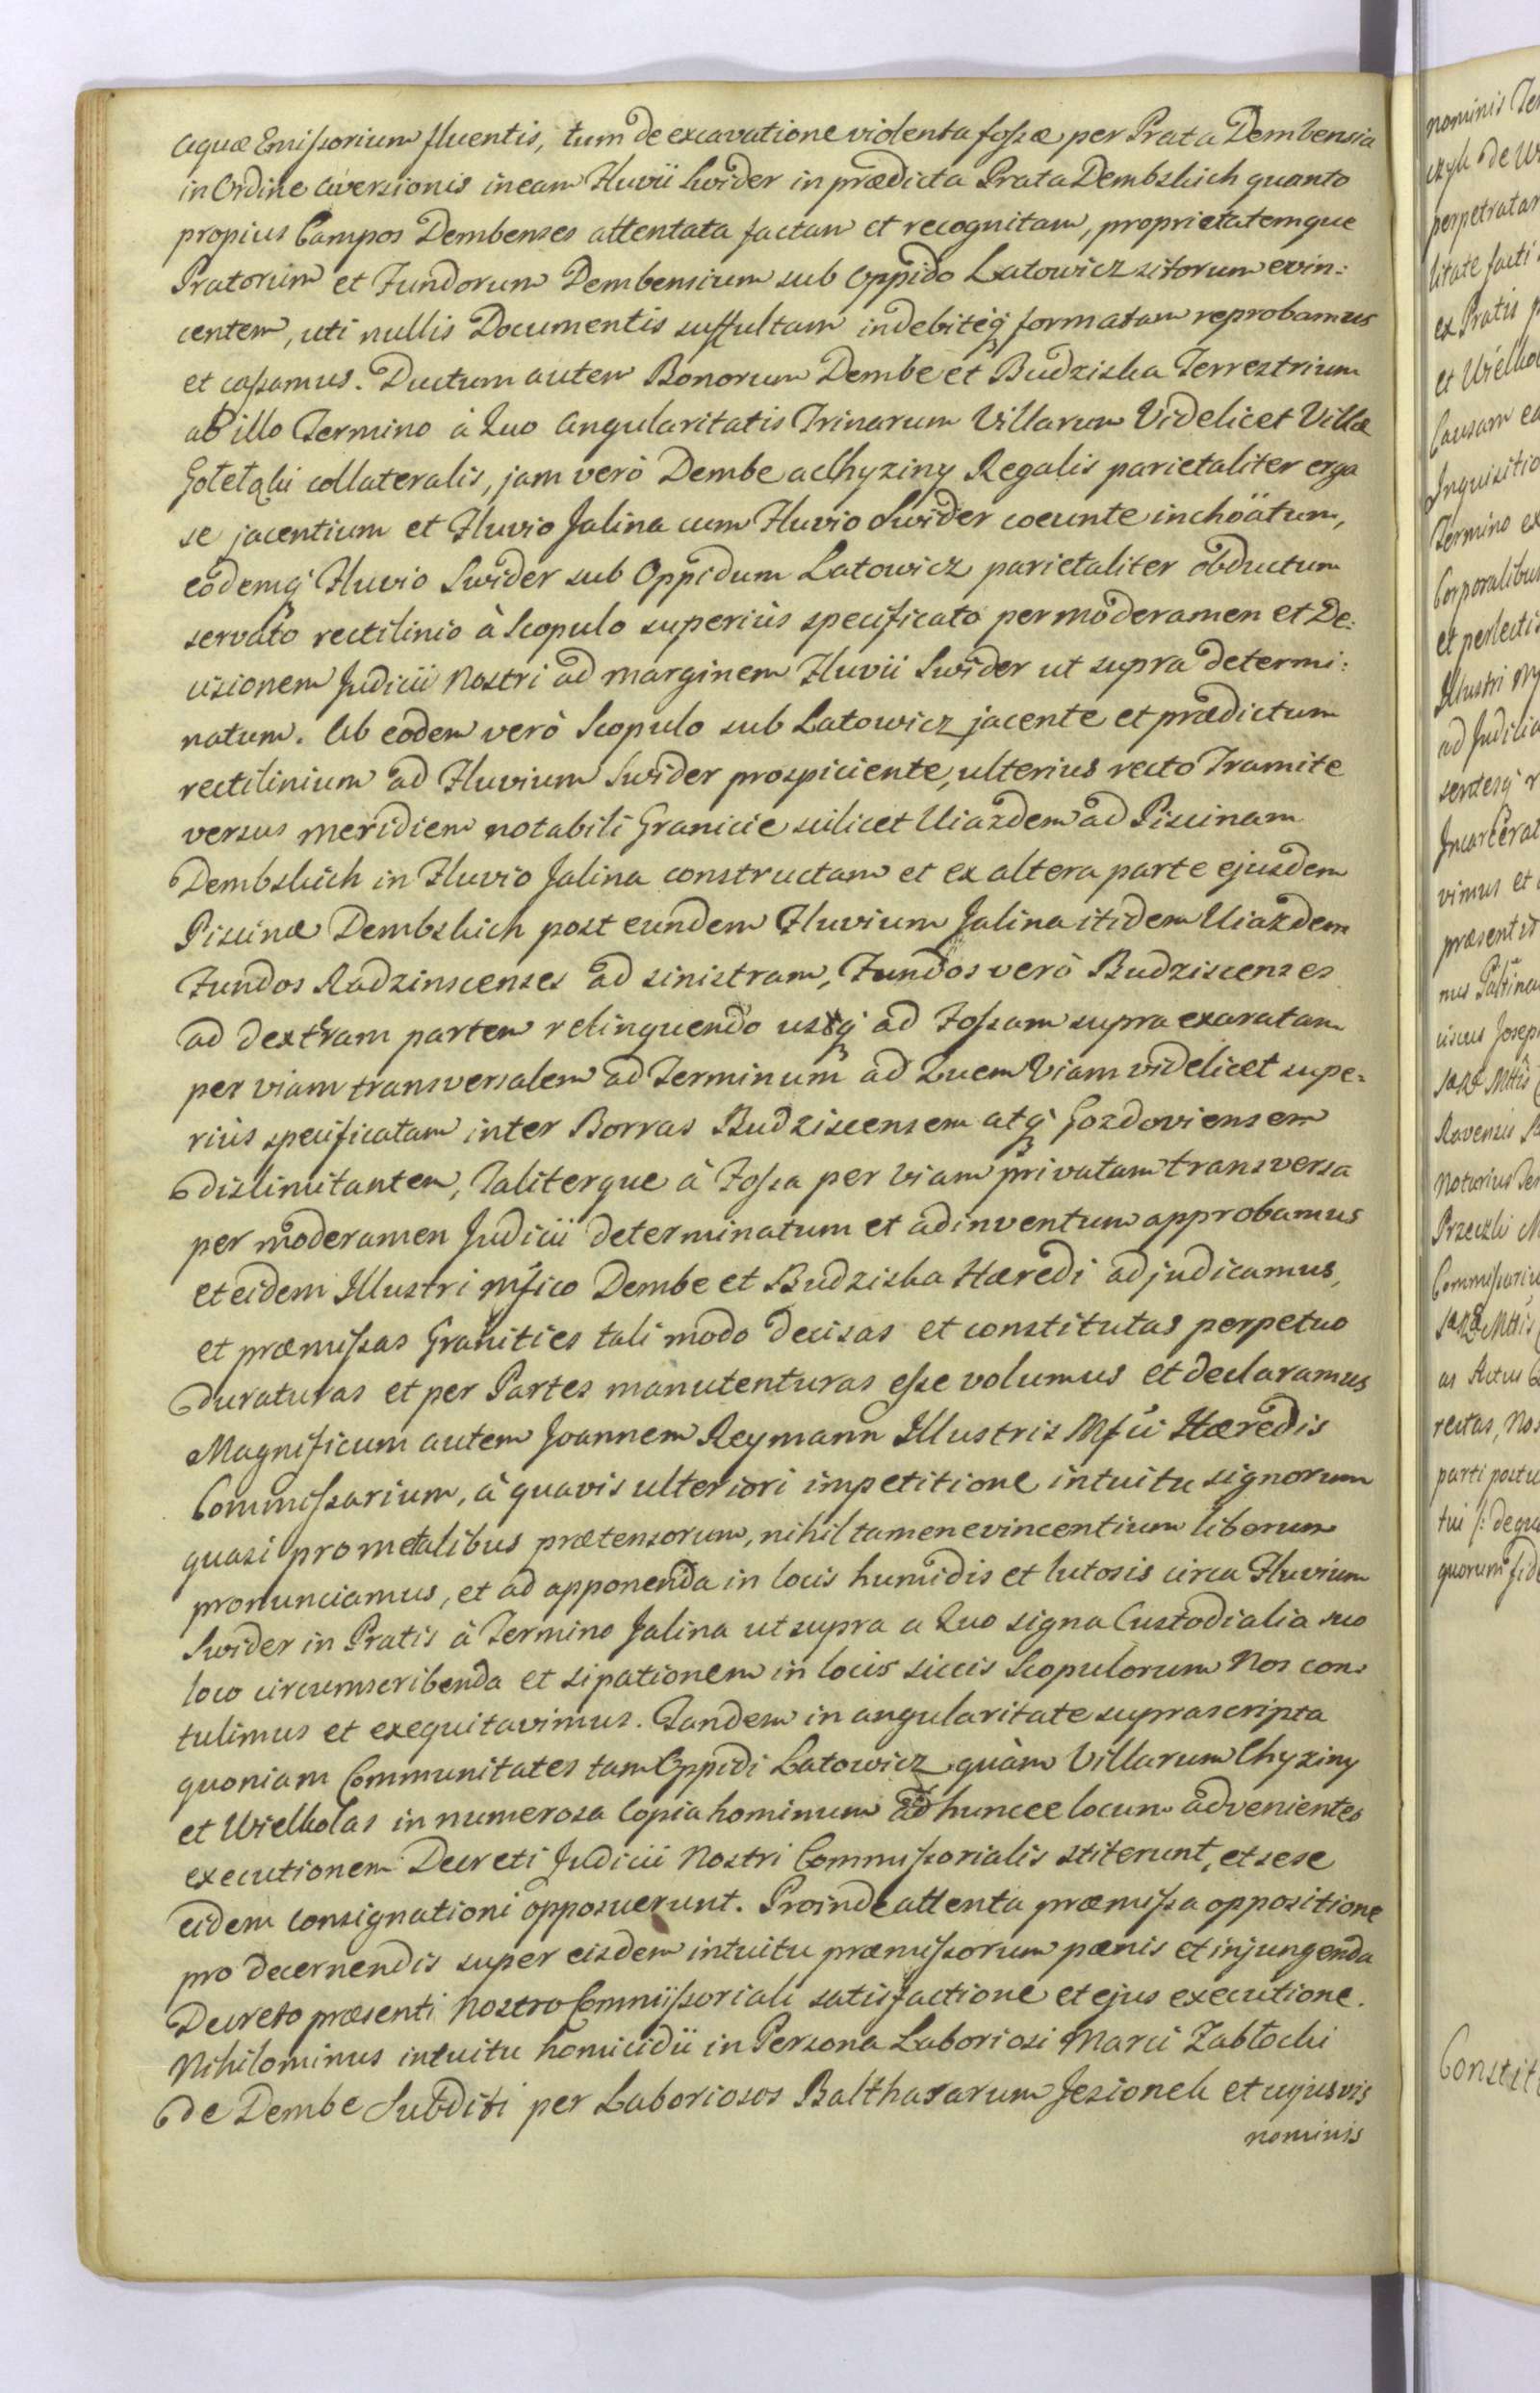 aquæ Emissorium fluentis, tum de excavatione violenta fossæ per Prata Dembensia
in Ordine aversionis ineam Fluvii Swider in prædicta Prata Dembskich quanto
propius Campos Dembenses attentata factam et recognitam, proprietatemque
Pratorum et Fundorum Dembensium sub Oppido Latowicz sitorum evin:
centem, uti nullis Documentis suffultam indebiteq; formatam reprobamus
et cassamus. Ductum autem Bonorum Dembe et Budziska Terrestrium
ab illo Termino à Quo Angularitatis Trinarum Villarum Videlicet Villæ
collateralis, jam verò Dembe ac Chyziny Regalis parietaliter erga
se jacentium et Fluvio Jalina cum Fluvio Swider coeunte inchoätum,
eodemq; Fluvio Swider sub Oppidum Latowicz parietaliter obductum
servato rectilinio à Scopulo superiùs specificato per moderamen et De:
cisionem Judicii Nostri ad marginem Fluvii Swider ut supra determi:
natum. Ab eodem verò Scopulo sub Latowicz jacente et prædictum
rectilinium ad Fluvium Swider prospiciente, ulterius recto Tramite
versus meridiem notabili Granicie scilicet Uiazdem ad Piscinam
Dembskich in Fluvio Jalina constructam et ex altera parte ejusdem
Piscinæ Dembskich post eundem Fluvium Jalina itidem Uiazdem
Fundos Radzinscenses ad sinistram, Fundos verò Budziscenses
ad dextram partem relinquendo usq; ad Fossam supra exaratam
per viam transversalem ad Terminum ad Quem Viam videlicet supe:
riùs specificatam inter Borras Budziscensem atq; Gozdoviensem
dislimitantem, Taliterque à Fossa per viam privatam transversa
per moderamen Judicii determinatum et adinventum approbamus
et eidem Illustri Mfico Dembe et Budziska Hæredi adjudicamus,
et præmissas Granities tali modo decisas et constitutas perpetuo
duraturas et per Partes manutenturas esse volumus et declaramus
Magnificum autem Joannem Reymann Illustris Mfci Hæredis
Commissarium, à quavis ulteriori impetitione intuitu signorum
quasi pro metalibus prætensorum, nihil tamen evincentium liberum
pronunciamus, et ad apponenda in locis humidis et lutosis circa Fluvium
Swider in Pratis à Termino Jalina ut supra a Quo signa Custodialia suo
loco circumscribenda et sipationem in locis siccis Scopulorum Nos con:
tulimus et exequitavimus. Tandem in angularitate suprascripta
quoniam Communitates tam Oppidi Latowicz quàm Villarum Chyziny
et Wielkolas in numerosa Copia hominum ad huncce locum advenientes
executionem Decreti Judicii Nostri Commissorialis stiterunt, et sese
eidem consignationi opposuerunt. Proinde attenta præmissa oppositione
pro decernendis super eisdem intuitu præmissorum pænis et injungenda
Decreto præsenti Nostro Commissoriali satisfactione et ejus executione.
Nihilominus intuitu homicidii in Persona Laboriosi Marci Zabłocki
de Dembe Subditi per Laboriosos Balthasarum Jezionek et cujusvis
nominis
nominis
perpetratar
litate facti
ex Pratis
Causam
Inquisitio
Termino ex
Corporalibus
et perlectis
Illustri
ad Judicia
Incarcerat
vimus et
præsentit
Ravensis
Notarius Ter
Commissariu
rectas, Nos
parti postu
quorum fide
Constit